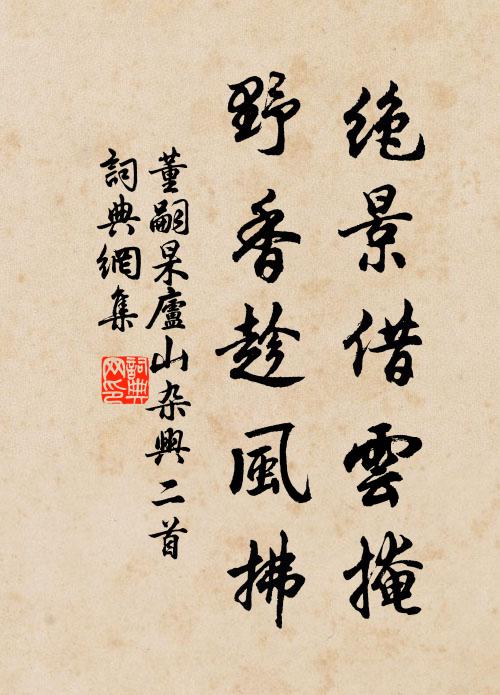 絶景借雲掩
野香趁風拂
董嗣杲廬山杂興二首
詞典網集
詞典
网印